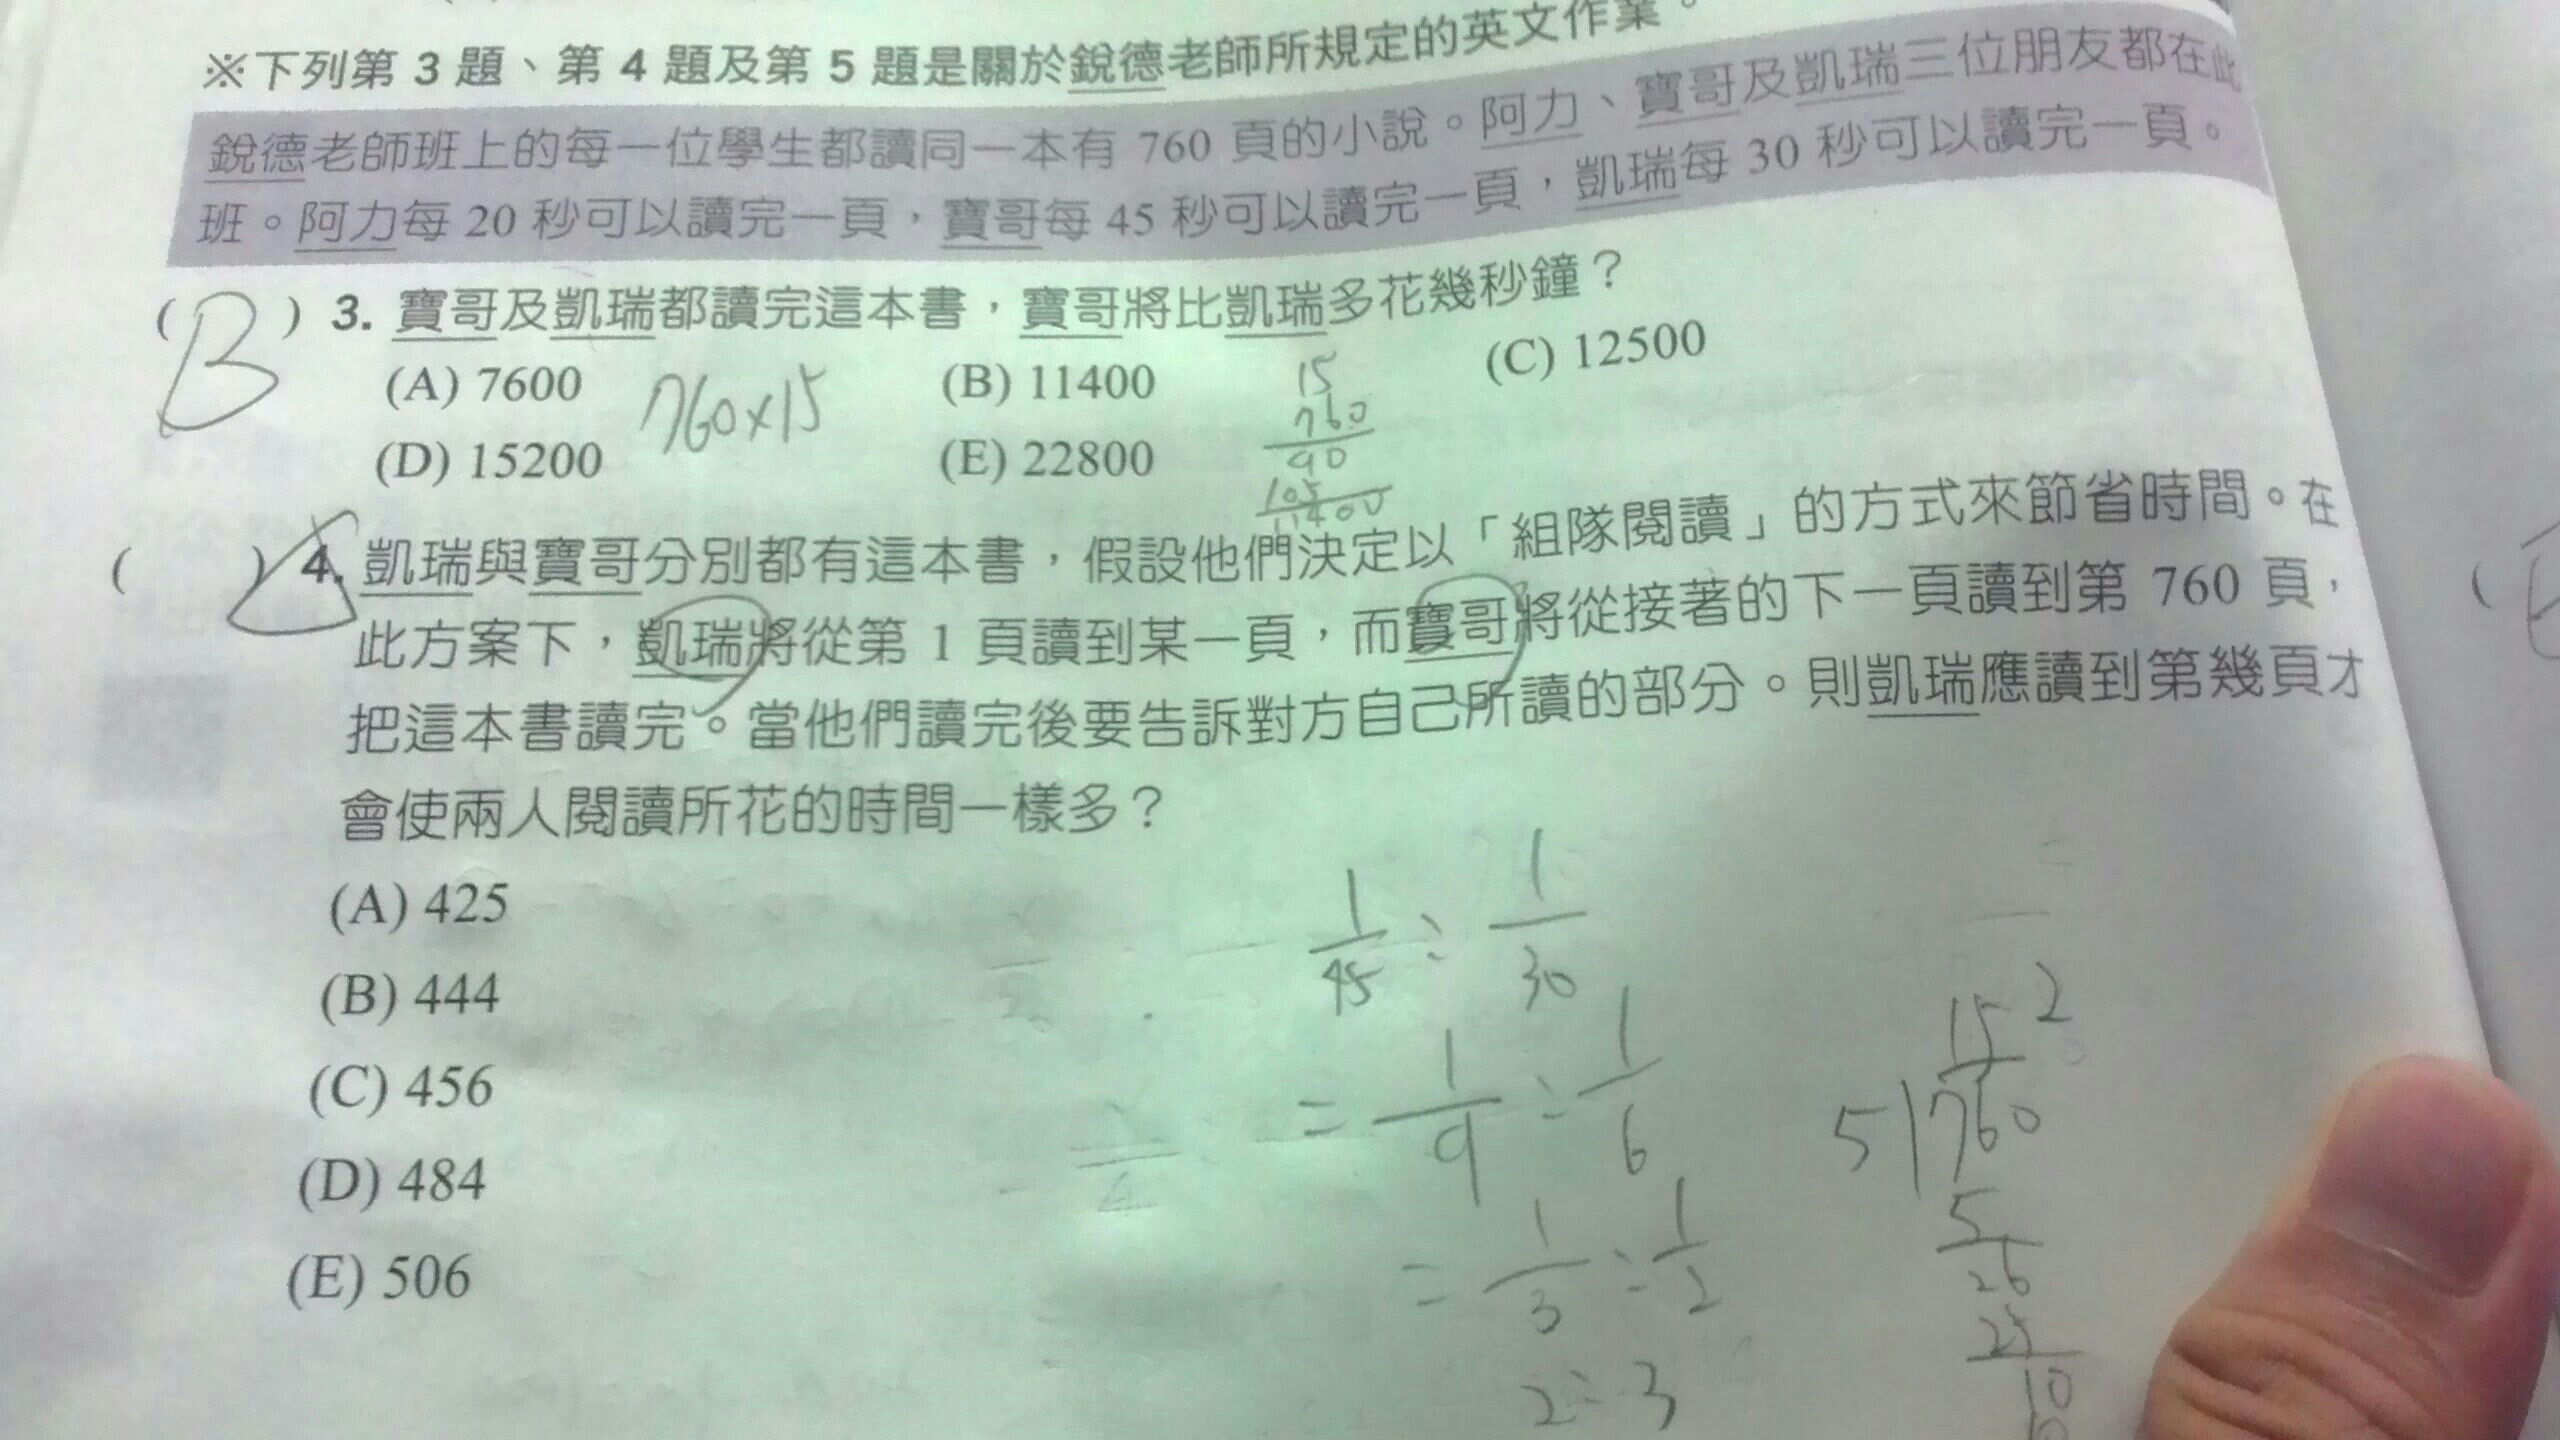 ※下列第 3 題、第 4 題及第 5 題是關於銳德老師所規定的英文作業。
銳德老師班上的每一位學生都讀同一本有 760 頁的小說。阿力、寶哥及凱瑞三位朋友都在此
班。阿力每 20 秒可以讀完一頁,寶哥每 45 秒可以讀完一頁,凱瑞每 30 秒可以讀完一頁。
( B ) 3. 寶哥及凱瑞都讀完這本書,寶哥將比凱瑞多花幾秒鐘?
(A) 7600 (B) 11400 (C) 12500
760×15
15
760
90
105
11400
(D) 15200 (E) 22800
( ) 4. 凱瑞與寶哥分別都有這本書,假設他們決定以「組隊閱讀」的方式來節省時間。在
此方案下,凱瑞將從第 1 頁讀到某一頁,而寶哥將從接著的下一頁讀到第 760 頁,
把這本書讀完。當他們讀完後要告訴對方自己所讀的部分。則凱瑞應讀到第幾頁才
會使兩人閱讀所花的時間一樣多?
(A) 425
(B) 444
(C) 456
(D) 484
(E) 506
1/45 : 1/30
= 1/9 : 1/6
= 1/3 : 1/2
2 : 3
152
5)760
5
26
25
10
10